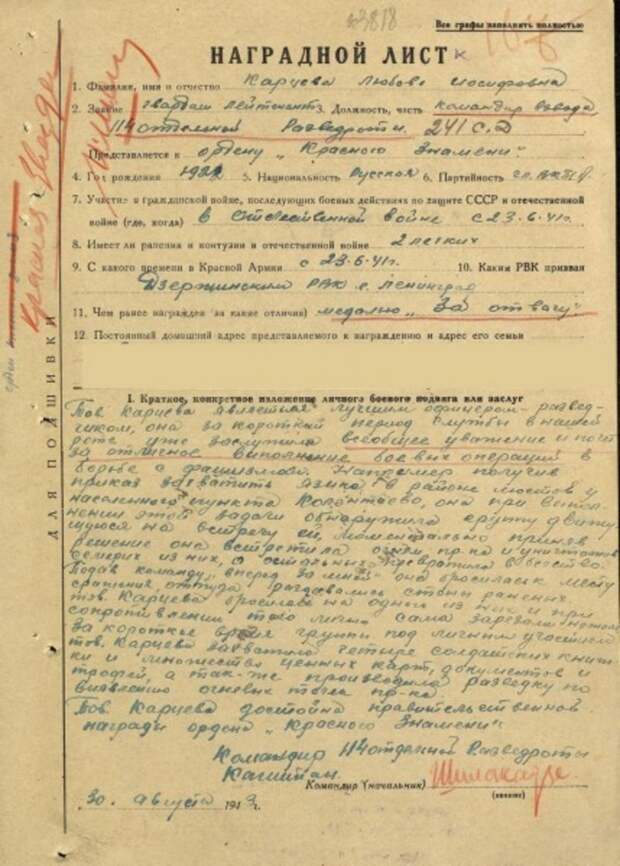 Все графы заполнить полностью
НАГРАДНОЙ ЛИСТ
1. Фамилия, имя и отчество Карцева Любовь Иосифовна
2. Звание гвардии лейтенант 3. Должность, часть командир взвода,
114 отдельной Разведроты 241 с.д
Представляется к ордену „Красного Знамени"
4. Год рождения 1922 5. Национальность Русская 6. Партийность
7. Участие в гражданской войне, последующих боевых действиях по защите СССР и отечественной
войне (где, когда) в отечественной войне с 23.6.41г.
8. Имеет ли ранения и контузии в отечественной войне 2 легких
9. С какого времени в Красной Армии с 23.6.41г. 10. Каким РВК призван
Дзержинским РВК г. Ленинград
11. Чем ранее награжден (за какие отличия) медалью „За отвагу"
12. Постоянный домашний адрес представляемого к награждению и адрес его семьи
I. Краткое, конкретное изложение личного боевого подвига или заслуг
Тов. Карцева является лучшим офицером-развед-
чиком, она за короткий период службы в нашей
роте, уже заслужила всеобщее уважение и почет
за отличное выполнение боевых операций в
борьбе с фашизмом. Например получив
приказ захватить языка в районе мостов у
населенного пункта она при выпол-
нении этой задачи обнаружила группу движу-
щуюся на встречу ей, моментально приняв
решение она встретила огнем пр-ка и уничтожив
семерых из них, а остальных превратила в бегство.
Подав команду „вперед за мной" она бросилась к месту
сражения, откуда раздавались стоны раненых.
тов. Карцева бросилась на одного из них и при
сопротивлении того лично сама зарезала ножом
За короткое время группа под личным участием
тов. Карцева захватила четыре солдатских книж-
ки и множество ценных карт, документов и
трофей, а так-же производила разведку по
выявлению огневых точек пр-ка
Тов. Карцева достойна правительственной
награды ордена „Красного Знамени"
Командир 114 отдельной Разведроты
Капитан
Командир (начальник)
(звание)
30. августа 1943г.
ДЛЯ ПОДШИВКИ
Красная Звезда